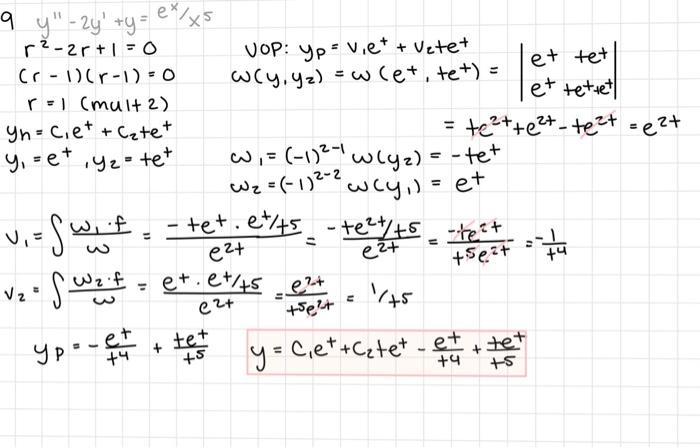 9 y'' - 2y' + y = e^x/x^5
r² - 2r + 1 = 0
(r - 1)(r - 1) = 0
r = 1 (mult 2)
yh = C₁e^t + C₂te^t
y₁ = e^t, y₂ = te^t
VOP: yp = v₁e^t + v₂te^t
w(y, y₂) = w(e^t, te^t) = | e^t te^t |
| e^t te^t+e^t |
= te^2t + e^2t - te^2t = e^2t
w₁ = (-1)^2-1 w(y₂) = -te^t
w₂ = (-1)^2-2 w(y₁) = e^t
v₁ = ∫ w₁·f / w = -te^t · e^t/t^5 / e^2t = -te^2t/t^5 / e^2t = -te^2t / t^5e^2t = -1/t^4
v₂ = ∫ w₂·f / w = e^t · e^t/t^5 / e^2t = e^2t / t^5e^2t = 1/t^5
yp = -e^t/t^4 + te^t/t^5
y = C₁e^t + C₂te^t - e^t/t^4 + te^t/t^5